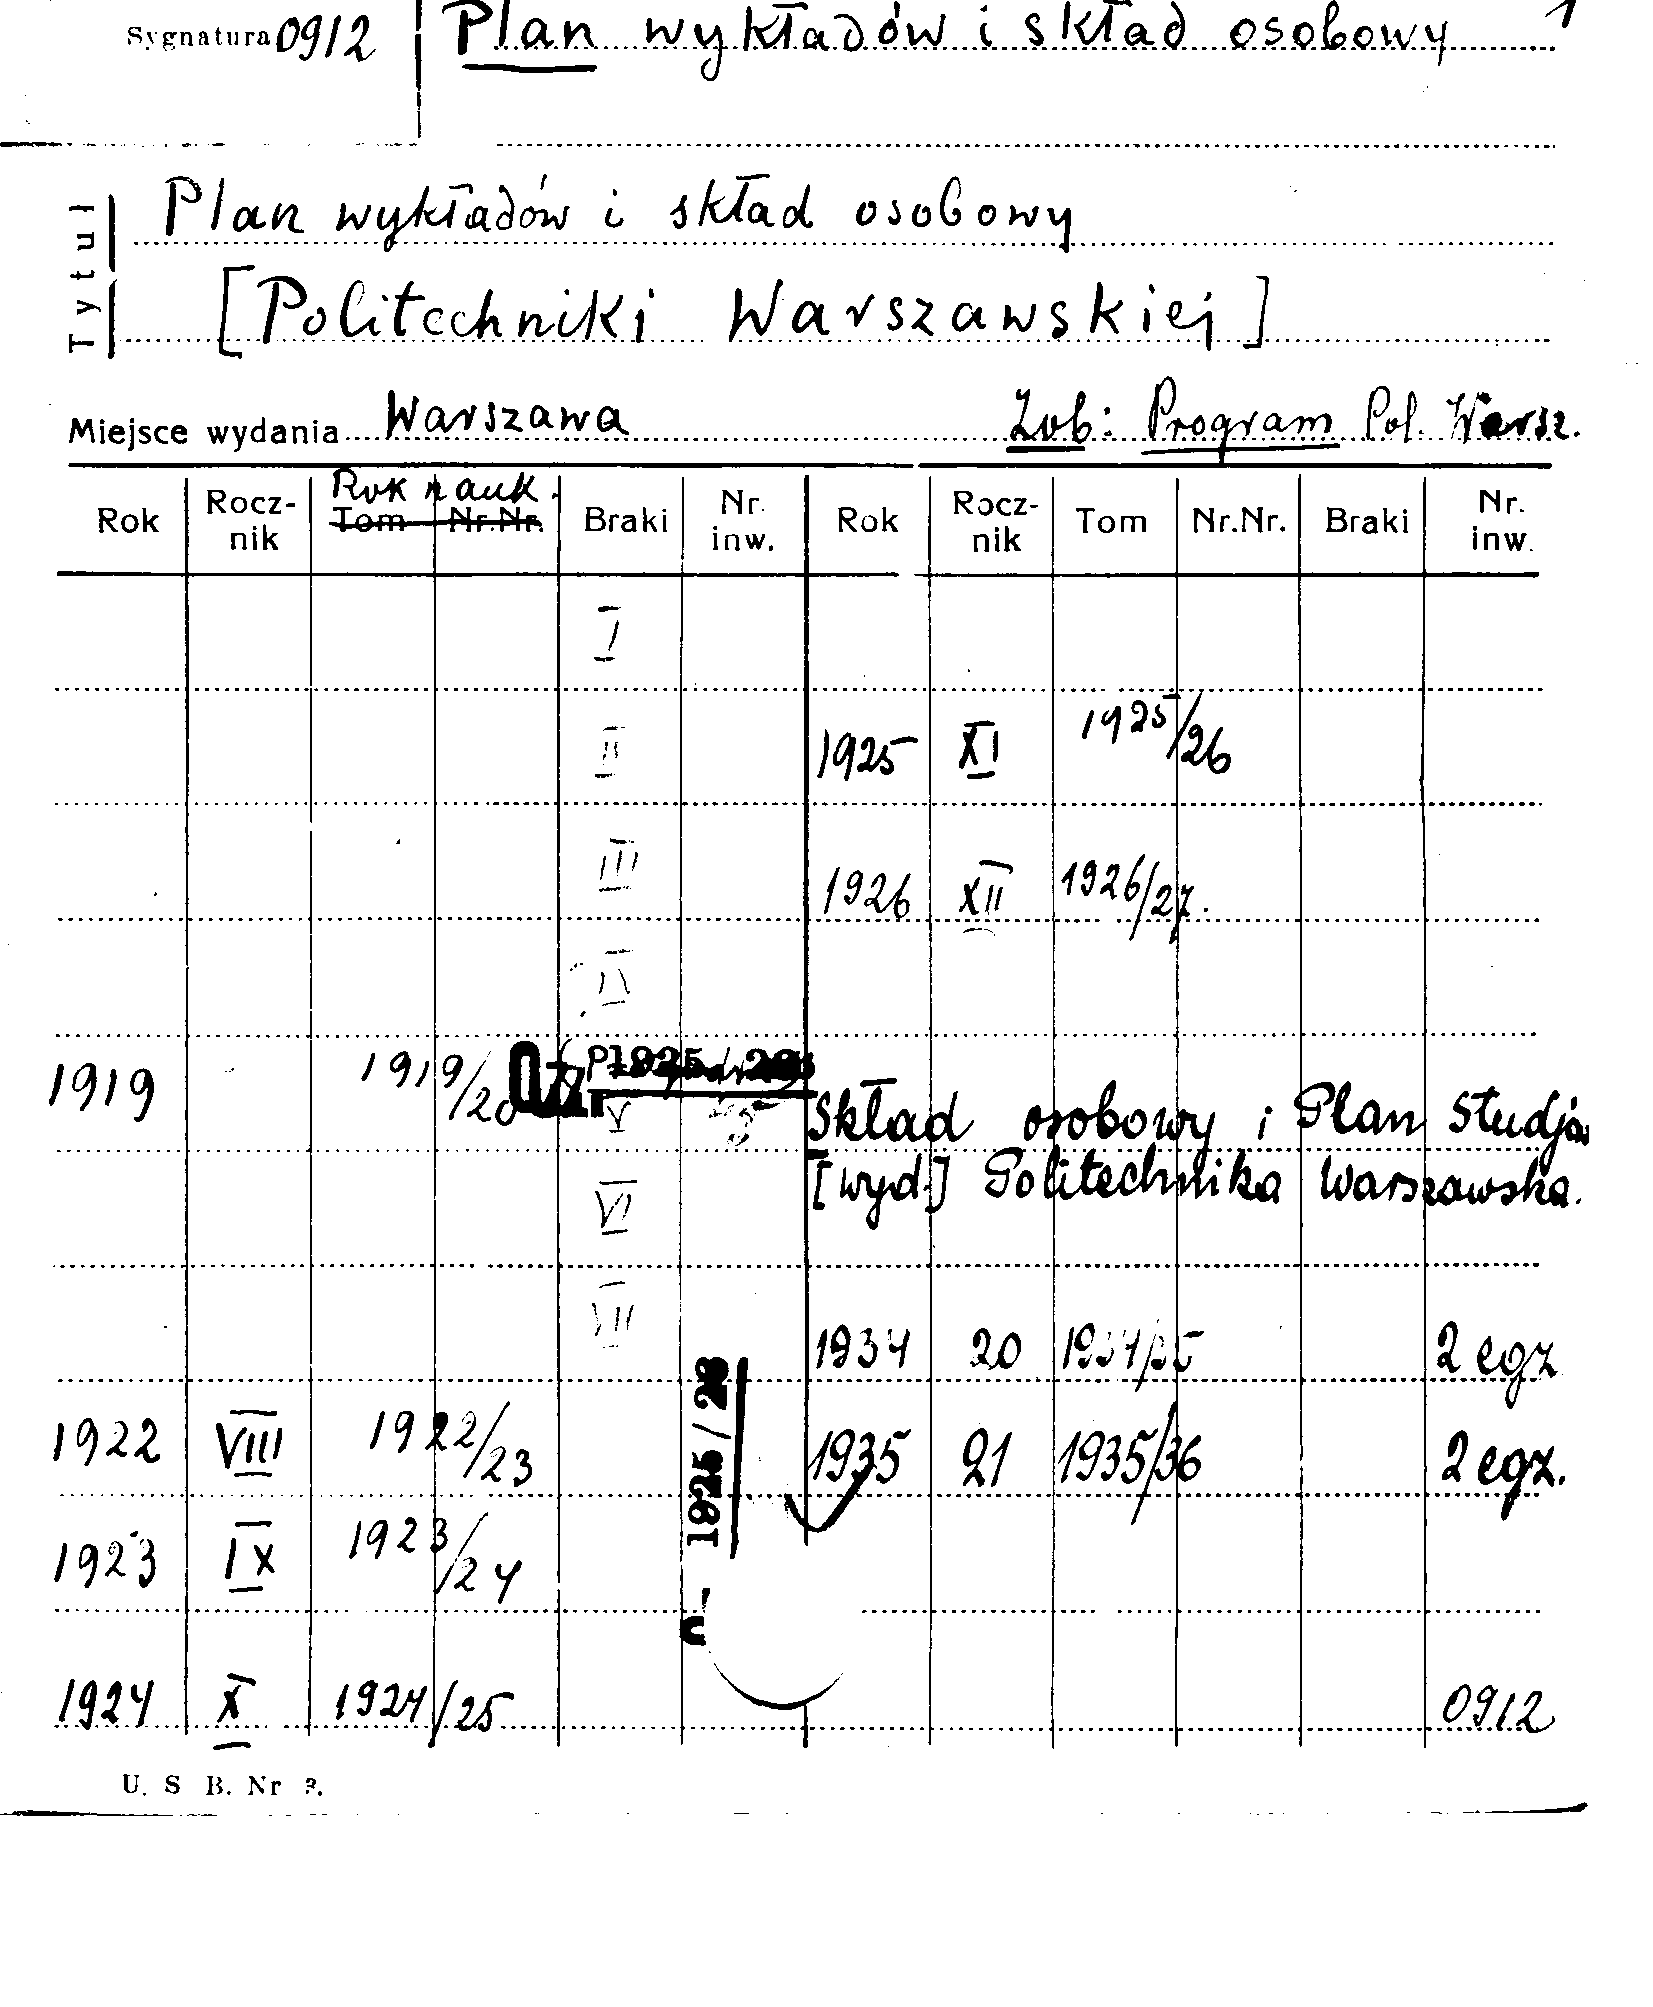 Sygnatura 0912 Plan wykładów i skład osobowy 1
Tytuł
Plan wykładów i skład osobowy
[Politechniki Warszawskiej]
Miejsce wydania Warszawa Zob: Program Pol. Warsz.
Rok nauk.
Rok Rocznik Tom Nr.Nr. Braki Nr. inw. Rok Rocznik Tom Nr.Nr. Braki Nr. inw.
I
II 1925 XI 1925/26
III 1926 XII 1926/27.
IV
1919 1919/20 V
Skład osobowy i Plan Studjów
[wyd.] Politechnika Warszawska.
VI
VII 1934 20 1934/35 2 egz
1922 VIII 1922/23 1935 21 1935/36 2 egz.
1925/26
1923 IX 1923/24
1924 X 1924/25 0912
U. S B. Nr